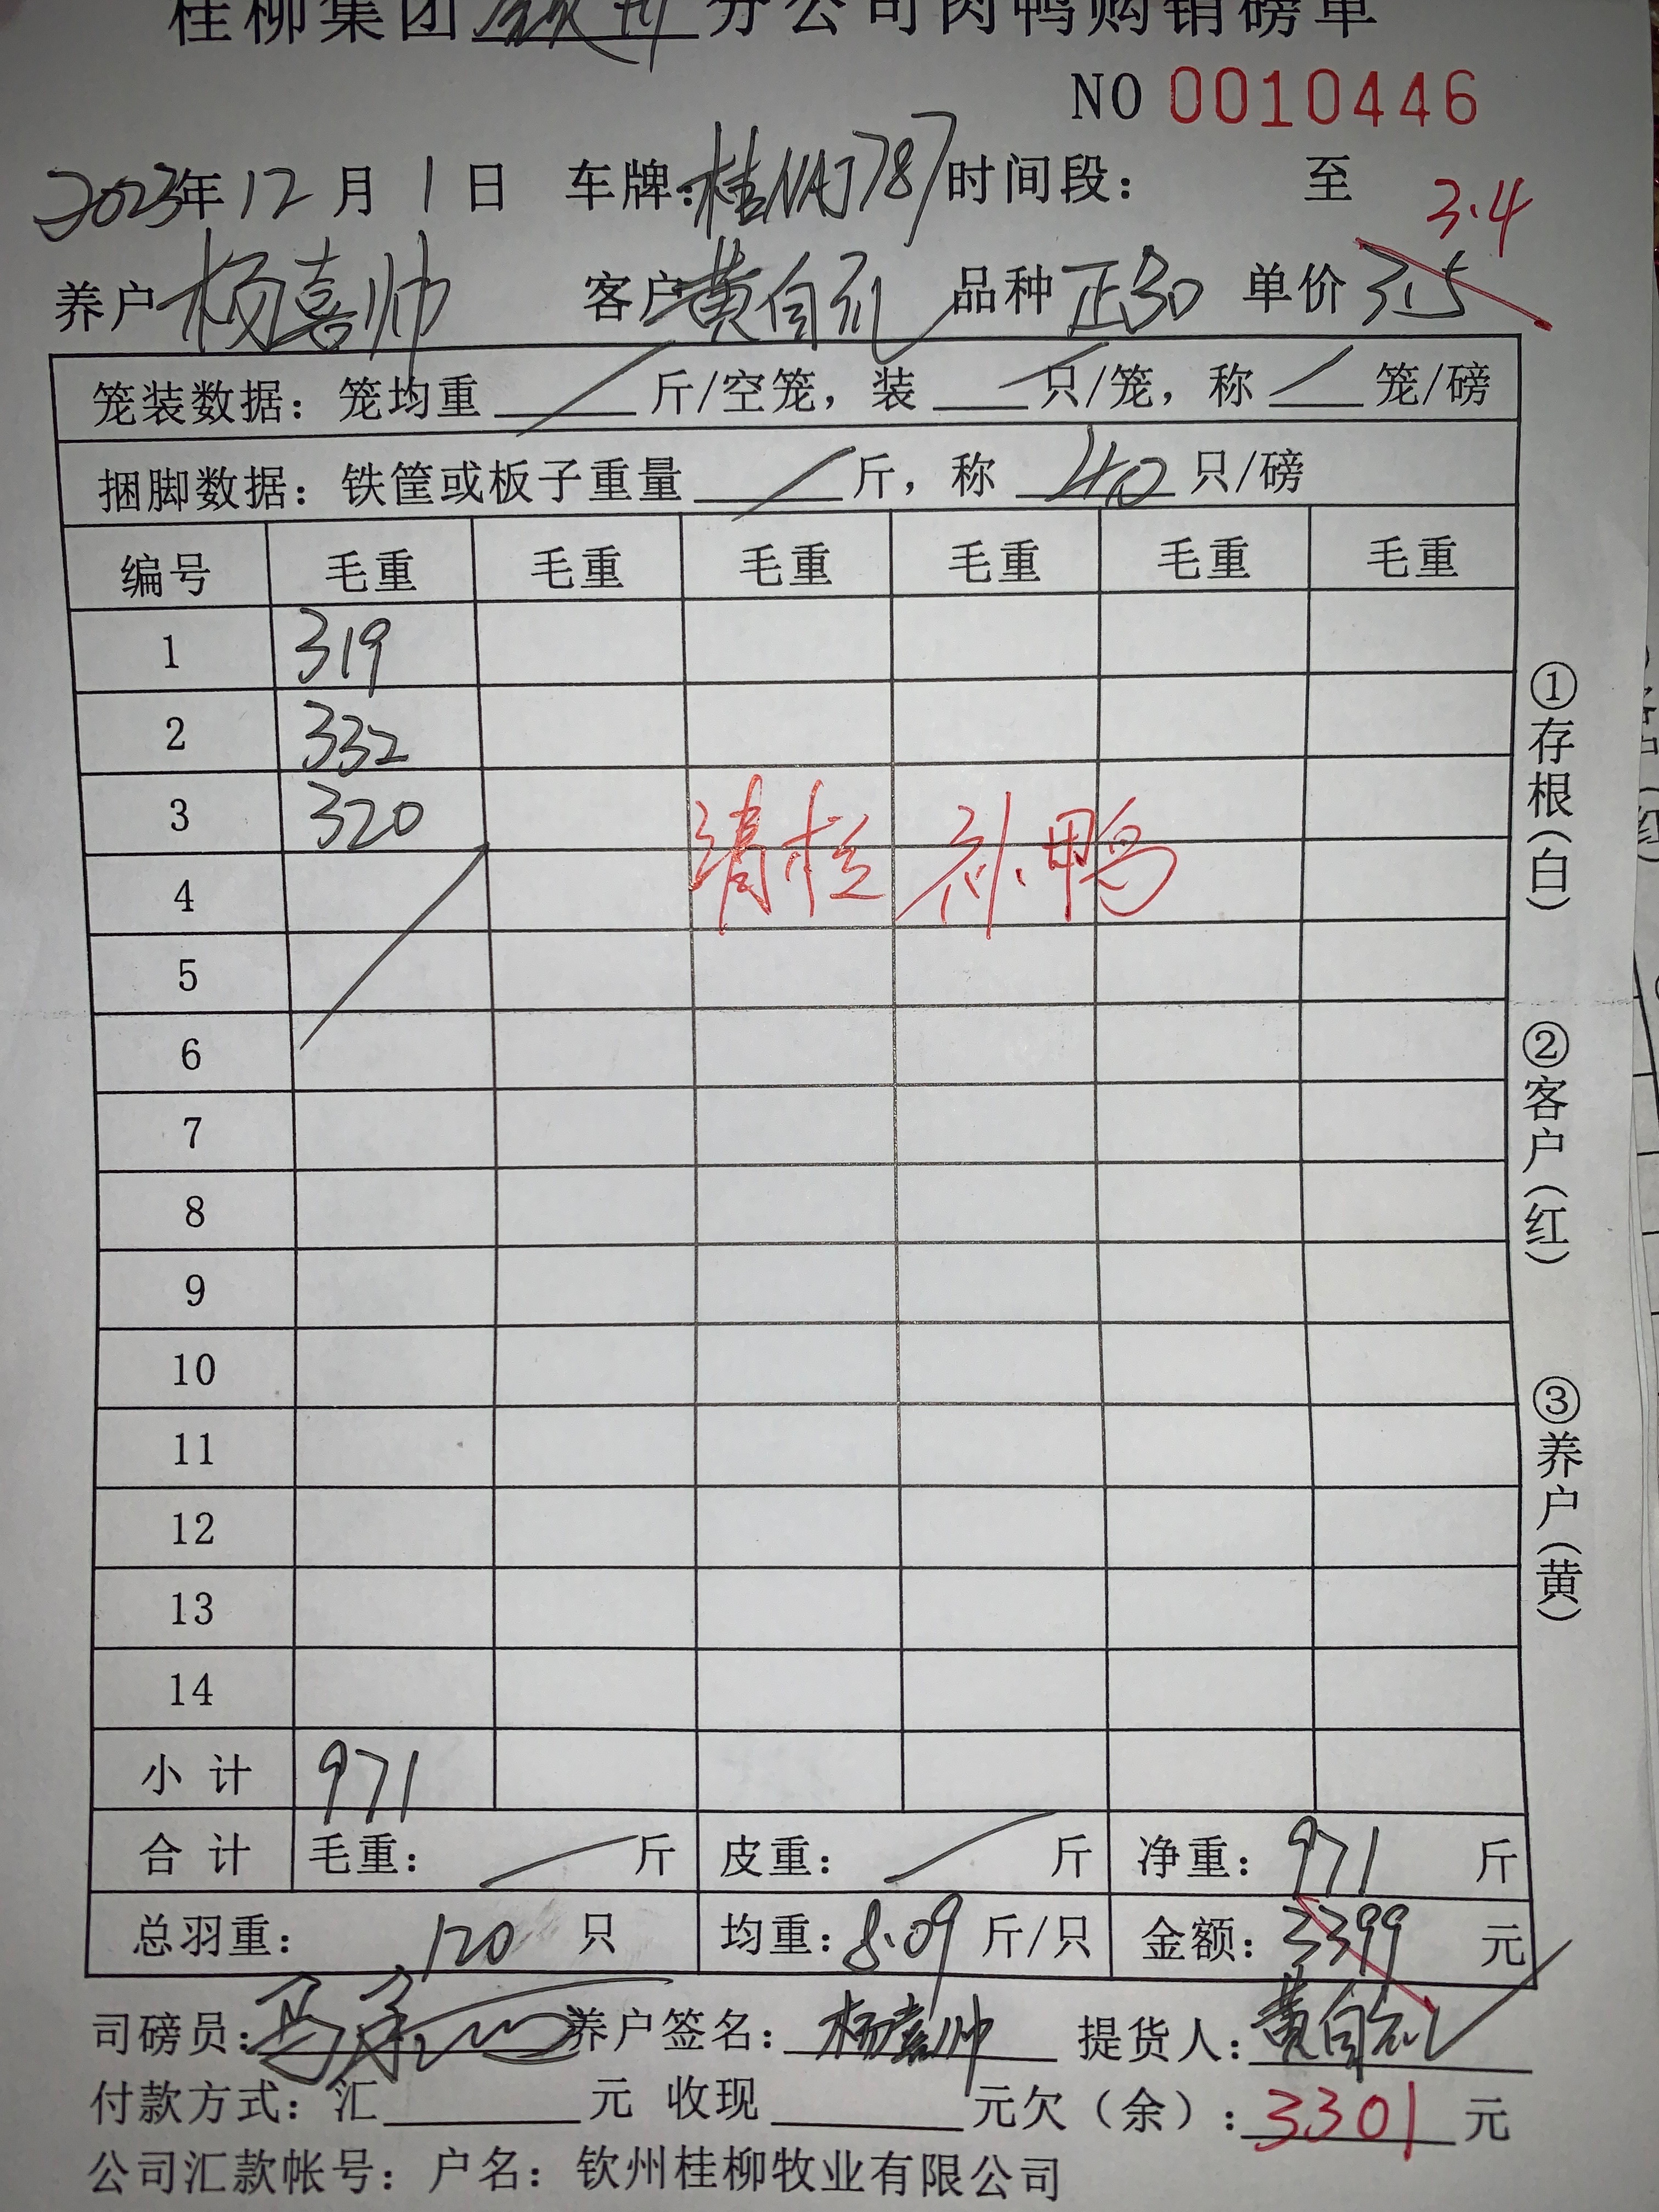 桂柳集团钦州分公司肉鸭购销磅单
NO 0010446
2023年12月1日 车牌:桂NAJ787 时间段: 至
3.4
养户 杨喜帅 客户 黄自礼 品种 正30 单价 3.5
笼装数据: 笼均重 斤/空笼, 装 只/笼, 称 笼/磅
捆脚数据: 铁筐或板子重量 斤, 称 40 只/磅
编号 毛重 毛重 毛重 毛重 毛重 毛重
1 319
2 332
3 320
清栏 补 鸭
4
5
6
7
8
9
10
11
12
13
14
小计 971
合计 毛重: 斤 皮重: 斤 净重: 971 斤
总羽重: 120 只 均重: 8.09 斤/只 金额: 3399 元
司磅员: 养户签名: 杨喜帅 提货人: 黄自礼
付款方式: 汇 元 收现 元欠(余): 3301 元
公司汇款帐号: 户名: 钦州桂柳牧业有限公司
①存根(白)
②客户(红)
③养户(黄)